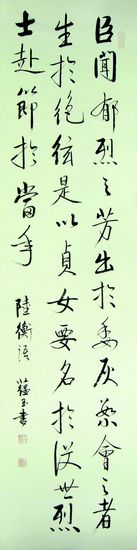 臣聞郁烈之芳出於委灰繁會之音
生於絕弦是以貞女要名於沒世烈
士赴節於當年
陸衡語 玉書